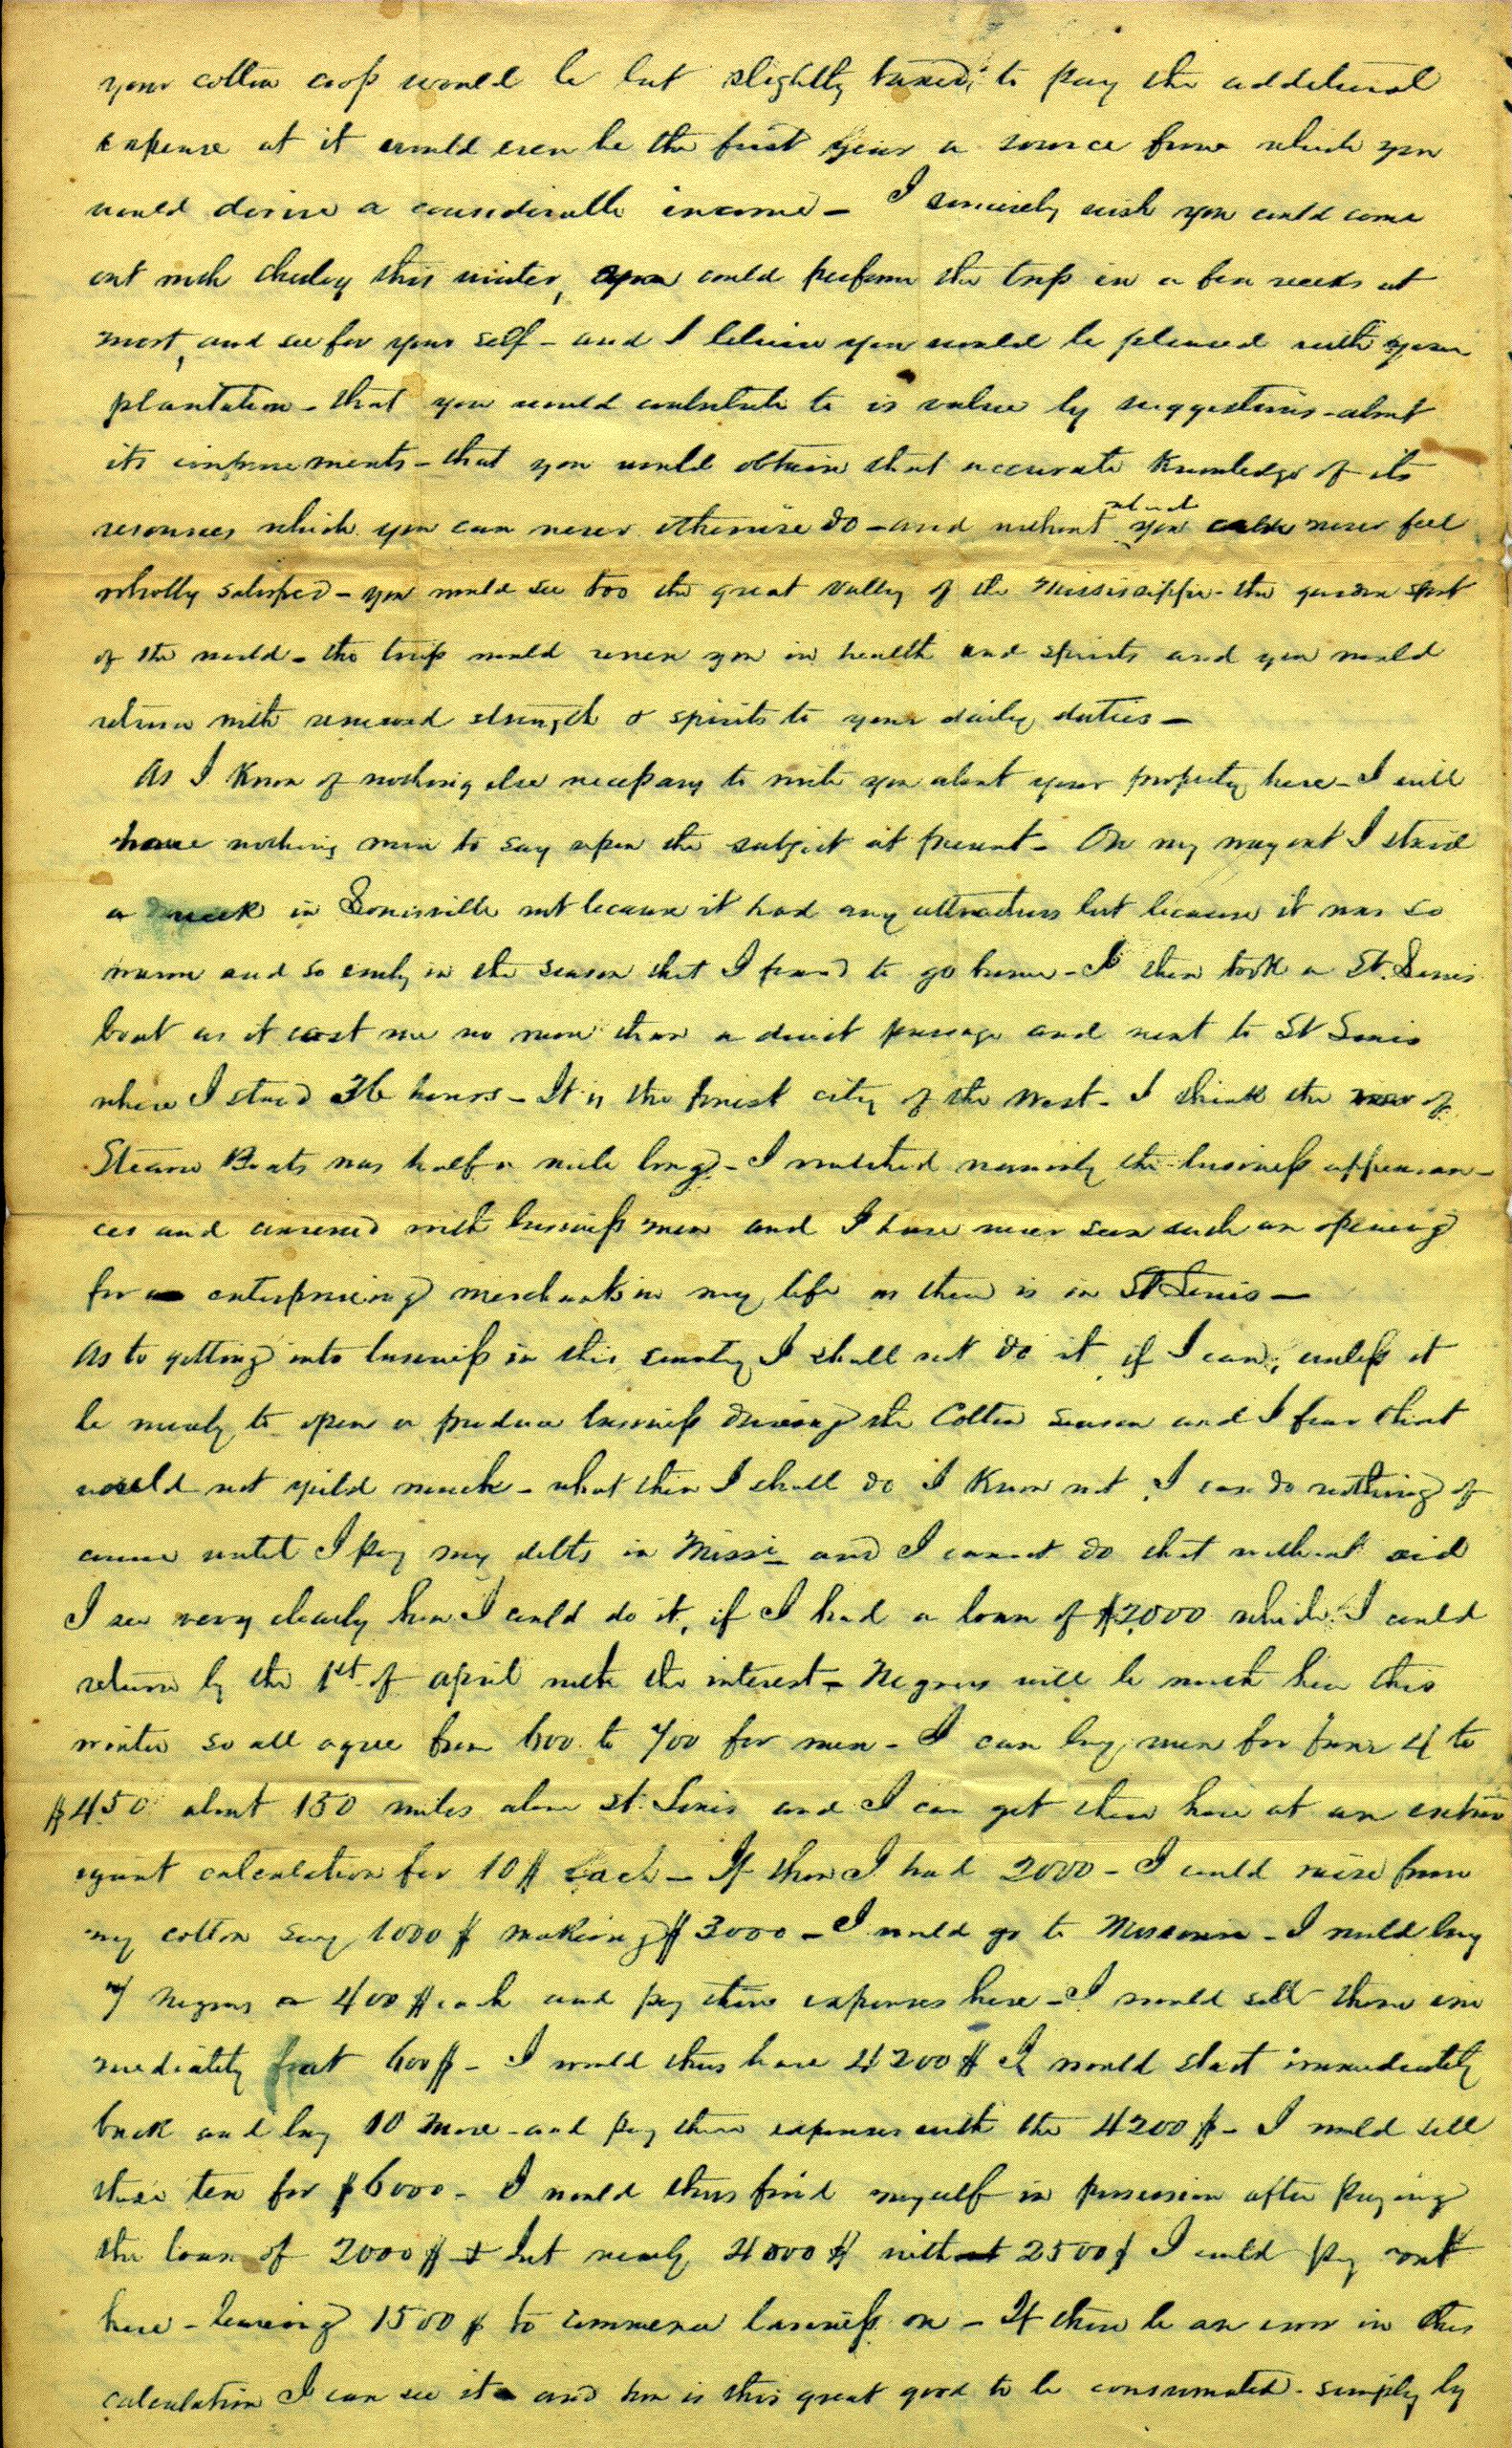 your cotton crop would be but slightly taxed, to pay the additional
expense at it would even be the first year a source from which you
would derive a considerable income - I sincerely wish you could come
out with Charley this winter, you could perform the trip in a few weeks at
most, and see for your self - and I believe you would be pleased with your
plantation - that you would contribute to is value by suggestions - about
its improvements - that you would obtain that accurate Knowledge of its
resources which you can never otherwise do - and without which you can never feel
wholly satisfied - you would see too the great vally of the Mississippi - the garden spot
of the world - the trip would renew you in health and spirits and you would
return with renewed strength & spirits to your daily duties -
As I Know of nothing else necessary to write you about your property here - I will
have nothing more to say upon the subject at present - On my way out I staid
a week in Louisville not because it had any attractions but because it was so
warm and so early in the season that I feared to go home - I then took a St. Louis
boat as it cost me no more than a direct passage and went to St Louis
where I staid 36 hours - It is the finest city of the West - I think the row of
Steam Boats was half a mile long - I watched narrowly the business appearan-
ces and conversed with business men and I have never seen such an opening
for enterprising merchants in my life as there is in St Louis -
As to getting into business in this country I shall not do it if I can, unless it
be merely to open a produce business during the Cotton Season and I fear that
would not yeild much - what then I shall do I Know not, I can do nothing of
course until I pay my debts in Missi and I cannot do that without aid
I see very clearly how I could do it, if I had a loan of $2000 which I could
return by the 1st of april with the interest - Negroes will be worth here this
winter so all agree from 600 to 700 for men - I can buy men for from 4 to
$450 about 150 miles above St. Louis and I can get them here at an extrav
agant calculation for 10$ each - If then I had 2000 - I could raise from
my cotton say 1000$ making $3000 - I would go to Missouri - I would buy
7 Negroes a 400$ each and pay their expenses here - I would sell them im
mediately at 600$ - I would thus have 4200$ I would start immediately
back and buy 10 more - and pay their expenses with the 4200$ - I would sell
these ten for $6000 - I would thus find myself in possession after paying
the loan of 2000$ & Int nearly 4000$ with 2500$ I could pay out
here - leaving 1500$ to commence business on - If there be an error in this
calculation I can see it and how is this great good to be consumated - simply by